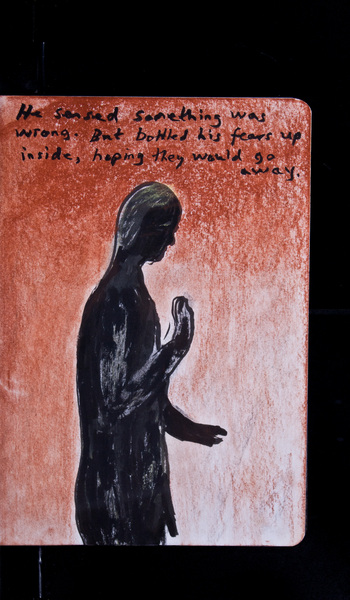 He sensed something was
wrong. But bottled his fears up
inside, hoping they would go
away.